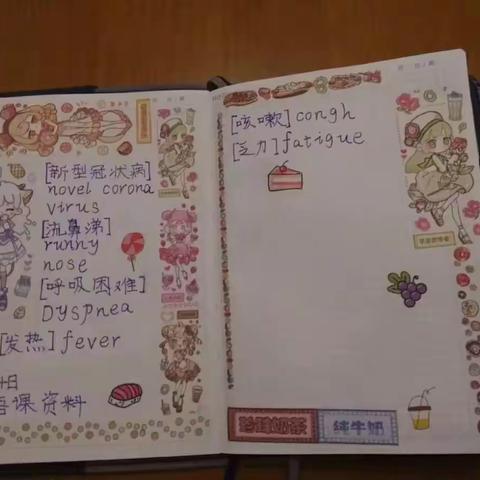 [新型冠状病]
novel corona
virus
[流鼻涕]
runny
nose
[呼吸困难]
Dyspnea
[发热] fever
日
语课资料
[咳嗽] congh
[乏力] fatigue
珍珠奶茶
纯牛奶